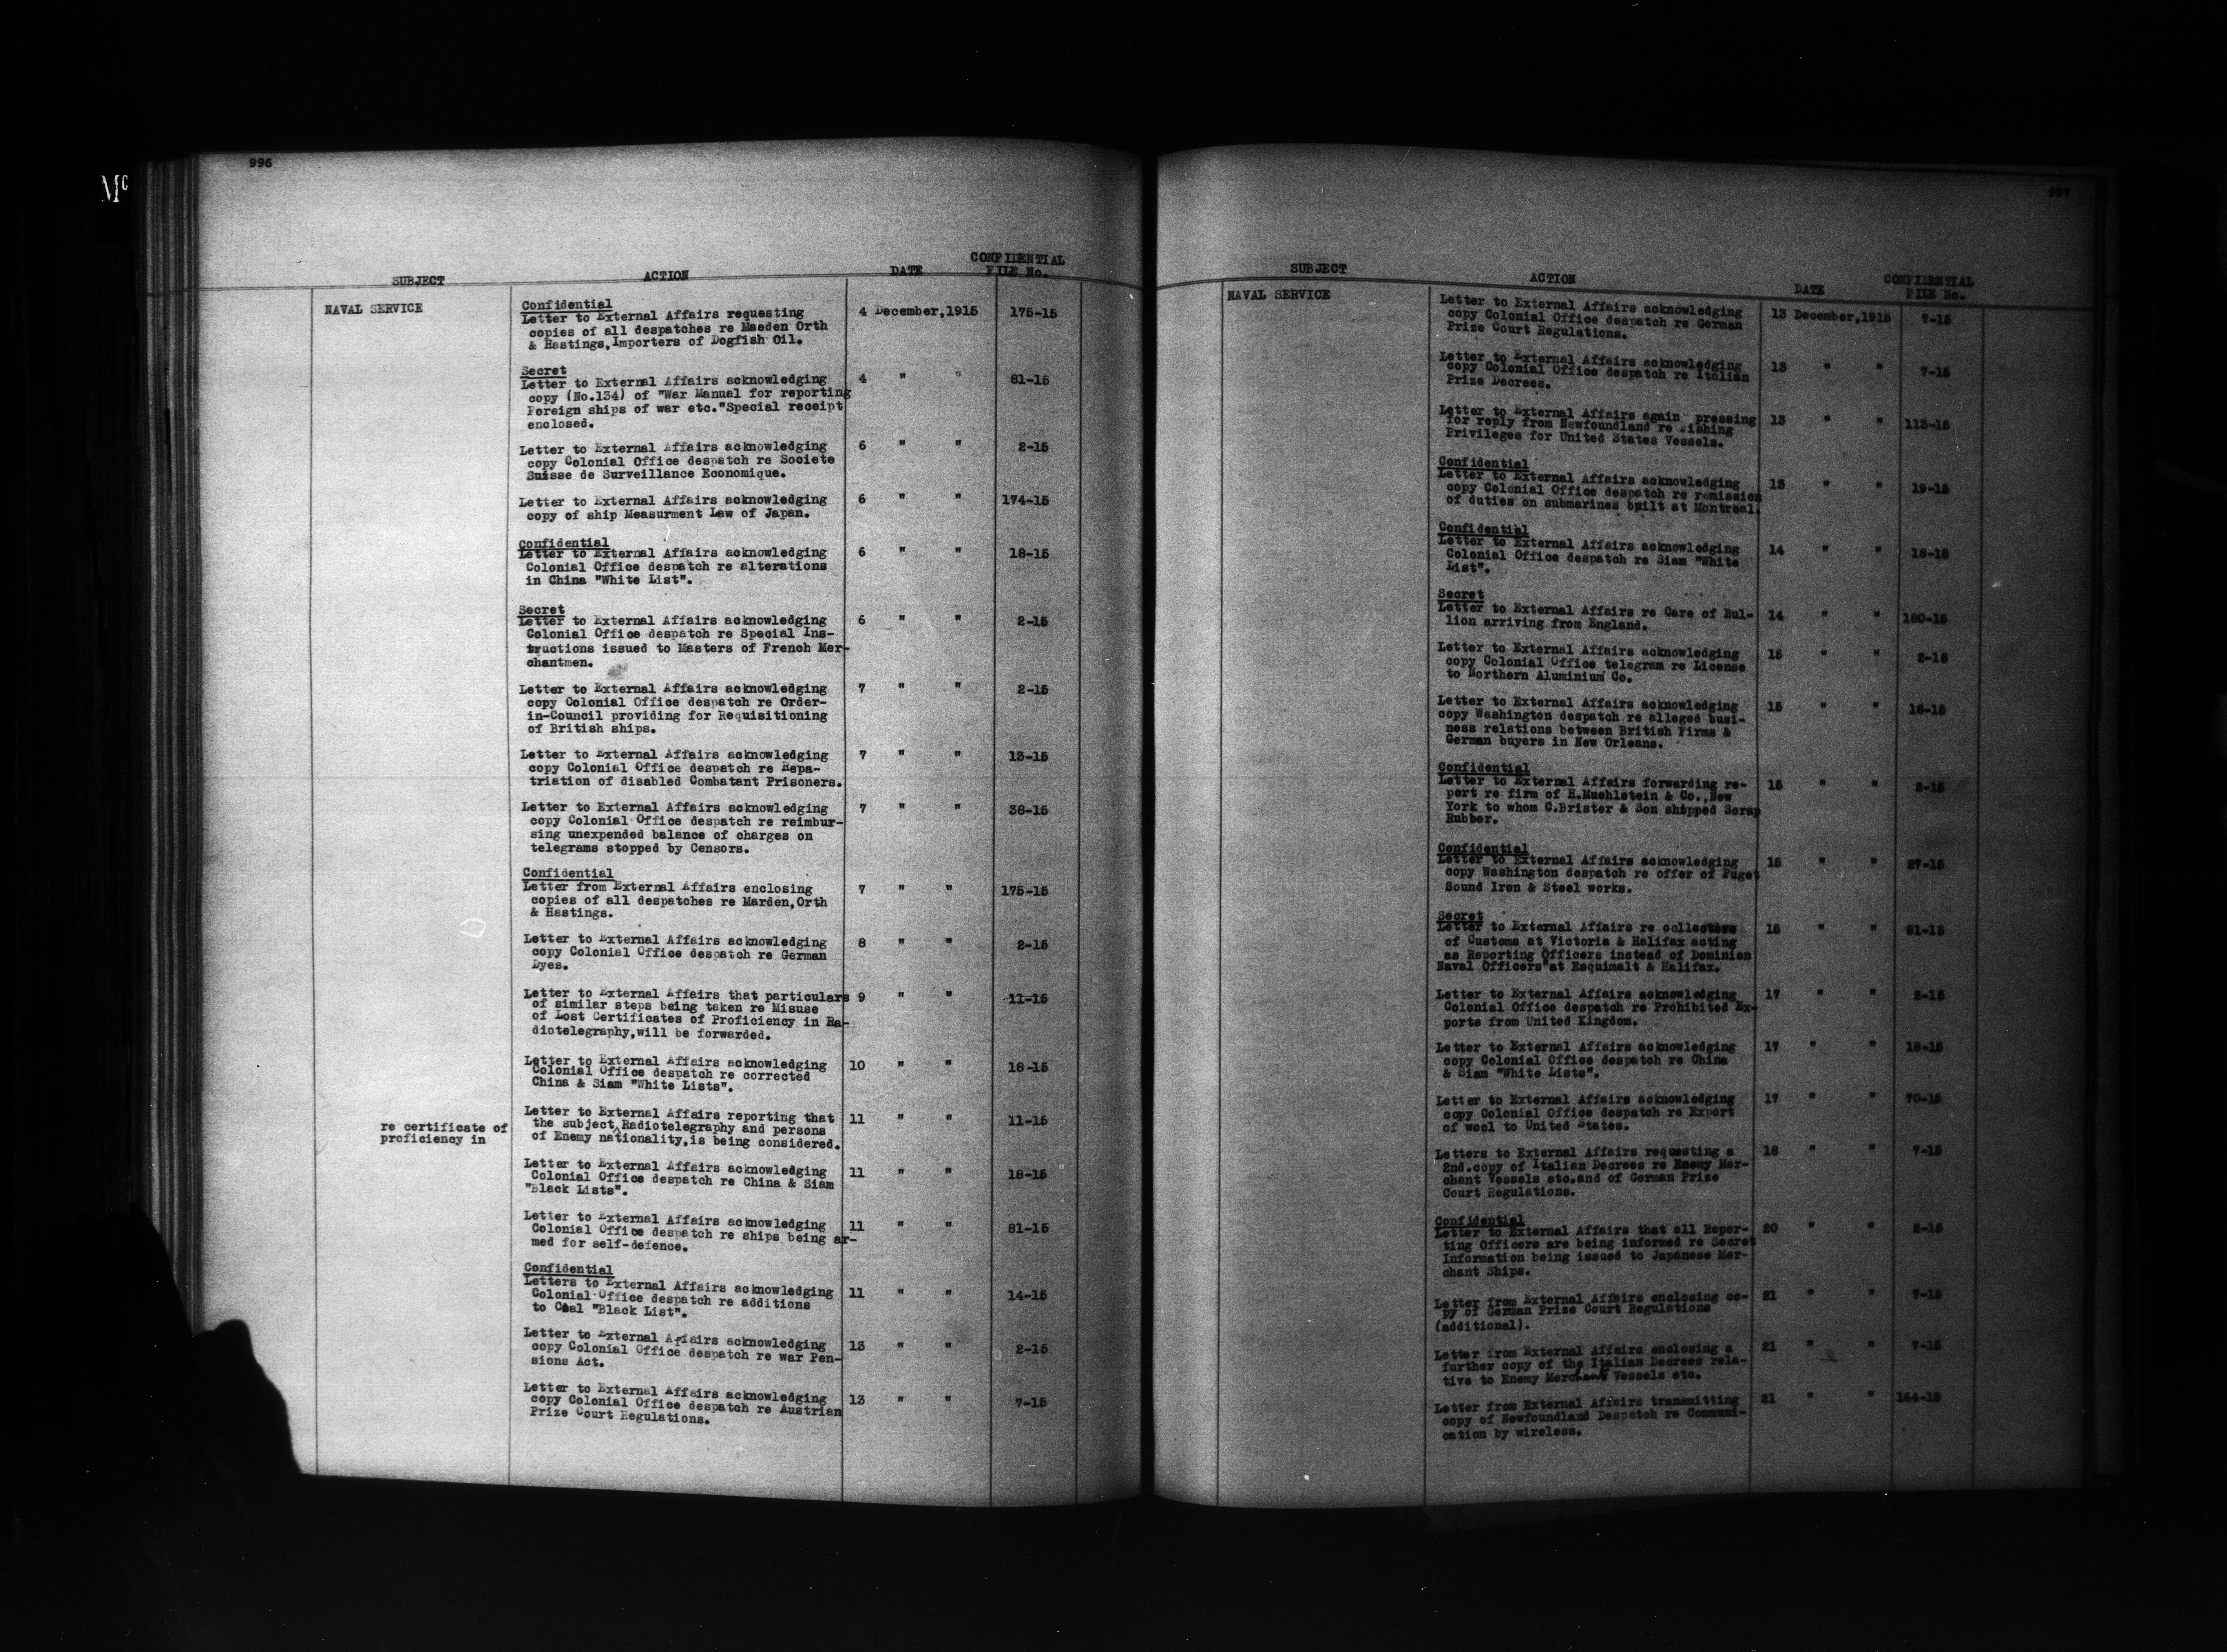 996
Mc
SUBJECT ACTION DATE CONFIDENTIAL FILE No.
NAVAL SERVICE
Confidential
Letter to External Affairs requesting 4 December,1915 175-15
copies of all despatches re Maeden Orth
& Hastings,Importers of Dogfish Oil.
Secret
Letter to External Affairs acknowledging 4 " " 81-15
copy (No.134) of "War Manual for reporting
Foreign ships of war etc."Special receipt
enclosed.
Letter to External Affairs acknowledging 6 " " 2-15
copy Colonial Office despatch re Societe
Suisse de Surveillance Economique.
Letter to External Affairs acknowledging 6 " " 174-15
copy of ship Measurment Law of Japan.
Confidential
Letter to External Affairs acknowledging 6 " " 18-15
Colonial Office despatch re alterations
in China "White List".
Secret
Letter to External Affairs acknowledging 6 " " 2-15
Colonial Office despatch re Special Ins-
tructions issued to Masters of French Mer-
chantmen.
Letter to External Affairs acknowledging 7 " " 2-15
copy Colonial Office despatch re Order-
in-Council providing for Requisitioning
of British ships.
Letter to External Affairs acknowledging 7 " " 13-15
copy Colonial Office despatch re Repa-
triation of disabled Combatant Prisoners.
Letter to External Affairs acknowledging 7 " " 38-15
copy Colonial Office despatch re reimbur-
sing unexpended balance of charges on
telegrams stopped by Censors.
Confidential
Letter from External Affairs enclosing 7 " " 175-15
copies of all despatches re Marden,Orth
& Hastings.
Letter to External Affairs acknowledging 8 " " 2-15
copy Colonial Office despatch re German
Dyes.
Letter to External Affairs that particulars 9 " " 11-15
of similar steps being taken re Misuse
of Lost Certificates of Proficiency in Ra-
diotelegraphy,will be forwarded.
Letter to External Affairs acknowledging 10 " " 18-15
Colonial Office despatch re corrected
China & Siam "White Lists".
Letter to External Affairs reporting that 11 " " 11-15
re certificate of proficiency in
the subject^Radiotelegraphy and persons
of Enemy nationality,is being considered.
Letter to External Affairs acknowledging 11 " " 18-15
Colonial Office despatch re China & Siam
"Black Lists".
Letter to External Affairs acknowledging 11 " " 81-15
Colonial Office despatch re ships being ar-
med for self-defence.
Confidential
Letters to External Affairs acknowledging 11 " " 14-15
Colonial Office despatch re additions
to Coal "Black List".
Letter to External Affairs acknowledging 13 " " 2-15
copy Colonial Office despatch re war Pen-
sions Act.
Letter to External Affairs acknowledging 13 " " 7-15
copy Colonial Office despatch re Austrian
Prize Court Regulations.
997
SUBJECT ACTION DATE CONFIDENTIAL FILE No.
NAVAL SERVICE
Letter to External Affairs acknowledging 13 December,1915 7-15
copy Colonial Office despatch re German
Prize Court Regulations.
Letter to External Affairs acknowledging 13 " " 7-15
copy Colonial Office despatch re Italian
Prize Decrees.
Letter to External Affairs again pressing 13 " " 113-15
for reply from Newfoundland re Fishing
Privileges for United States Vessels.
Confidential
Letter to External Affairs acknowledging 13 " " 19-15
copy Colonial Office despatch re remission
of duties on submarines built at Montreal.
Confidential
Letter to External Affairs acknowledging 14 " " 18-15
Colonial Office despatch re Siam "White
List".
Secret
Letter to External Affairs re Care of Bul- 14 " " 180-15
lion arriving from England.
Letter to External Affairs acknowledging 15 " " 2-15
copy Colonial Office telegram re License
to Northern Aluminium Co.
Letter to External Affairs acknowledging 15 " " 18-15
copy Washington despatch re alleged busi-
ness relations between British Firms &
German buyers in New Orleans.
Confidential
Letter to External Affairs forwarding re- 15 " " 2-15
port re firm of H.Muehlstein & Co.,New
York to whom C.Brister & Son shipped Scrap
Rubber.
Confidential
Letter to External Affairs acknowledging 15 " " 27-15
copy Washington despatch re offer of Puget
Sound Iron & Steel works.
Secret
Letter to External Affairs re collectors 15 " " 81-15
of Customs at Victoria & Halifax acting
as Reporting Officers instead of Dominion
Naval Officers"at Esquimalt & Halifax.
Letter to External Affairs acknowledging 17 " " 2-15
Colonial Office despatch re Prohibited Ex-
ports from United Kingdom.
Letter to External Affairs acknowledging 17 " " 18-15
copy Colonial Office despatch re China
& Siam "White Lists".
Letter to External Affairs acknowledging 17 " " 70-15
copy Colonial Office despatch re Export
of wool to United States.
Letters to External Affairs requesting a 18 " " 7-15
2nd.copy of Italian Decrees re Enemy Mer-
chant Vessels etc.and of German Prize
Court Regulations.
Confidential
Letter to External Affairs that all Repor- 20 " " 2-15
ting Officers are being informed re Secret
Information being issued to Japanese Mer-
chant Ships.
Letter from External Affairs enclosing co- 21 " " 7-15
py of German Prize Court Regulations
(additional).
Letter from External Affairs enclosing a 21 " " 7-15
further copy of the Italian Decrees rela-
tive to Enemy Merchant Vessels etc.
Letter from External Affairs transmitting 21 " " 164-15
copy of Newfoundland Despatch re Communi-
cation by wireless.